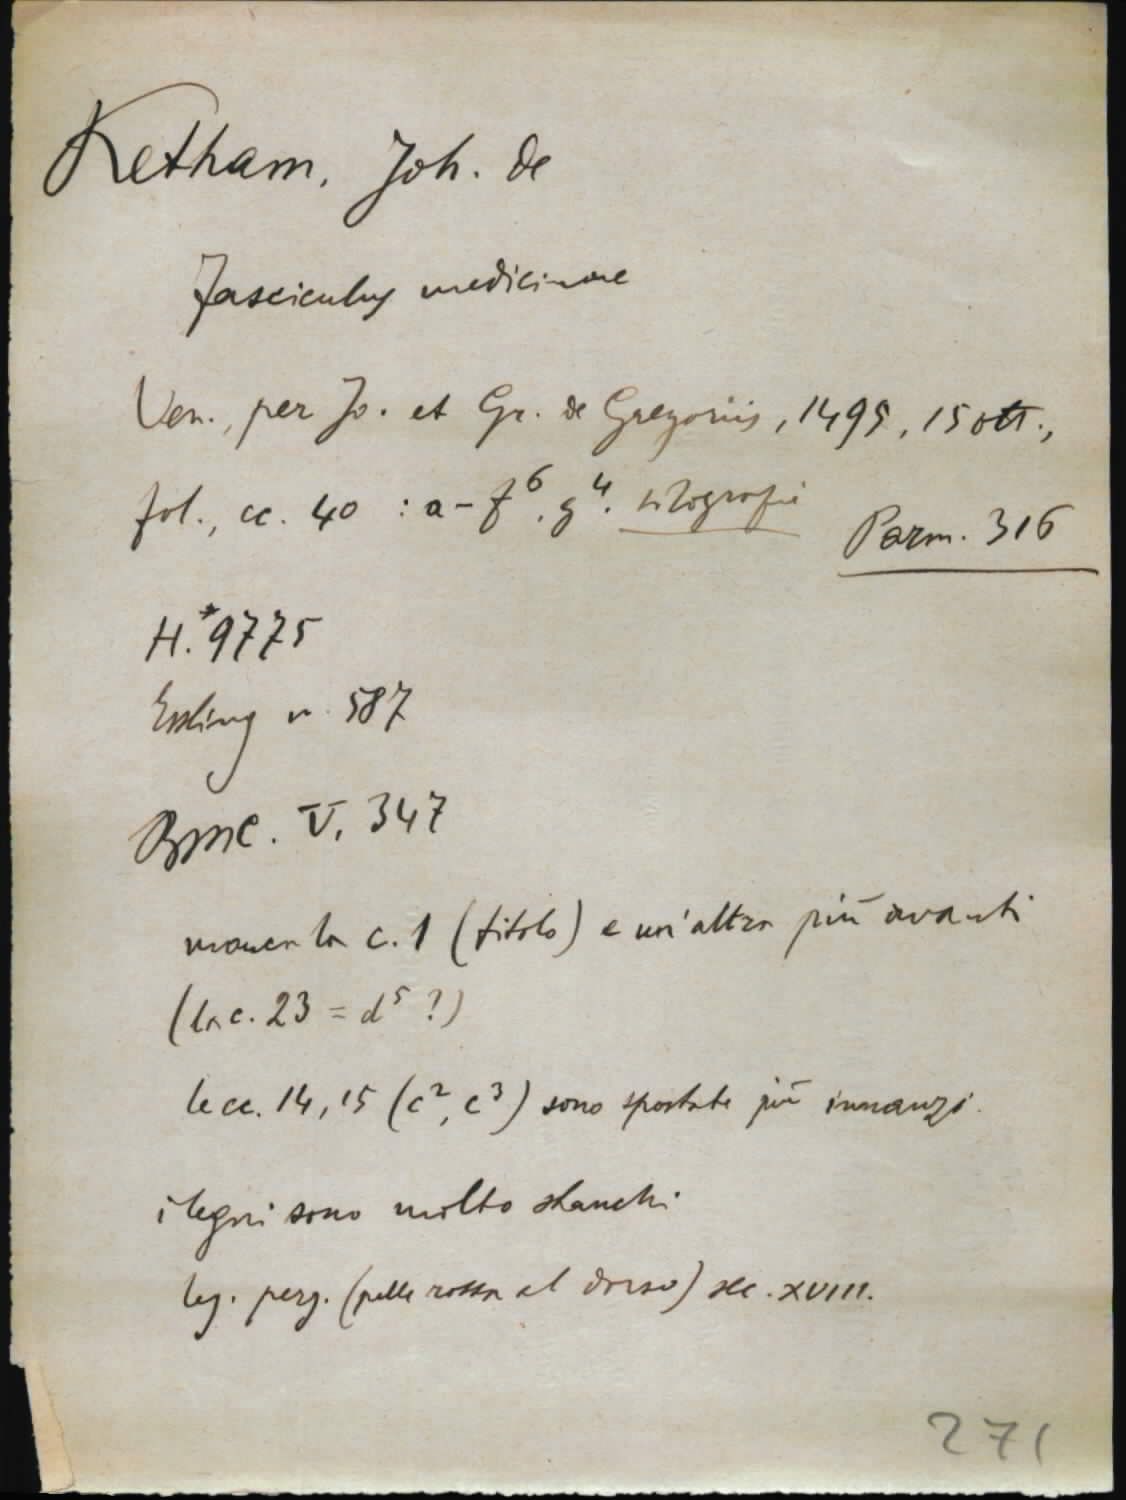 Ketham, Joh. de
Fasciculus medicinae
Ven., per Jo. et Gr. de Gregoriis, 1495, 15 ott.,
fol., cc. 40 : a-f⁶, g⁴. silografie
Parm. 316
H.*9775
Essling n. 587
BMC. V, 347
manca la c. 1 (titolo) e un'altra più avanti
(la c. 23 = d⁵ ?)
le cc. 14, 15 (c², c³) sono spostate più innanzi.
i legni sono molto stanchi
leg. perg. (pelle rossa al dorso) sec. XVIII.
271